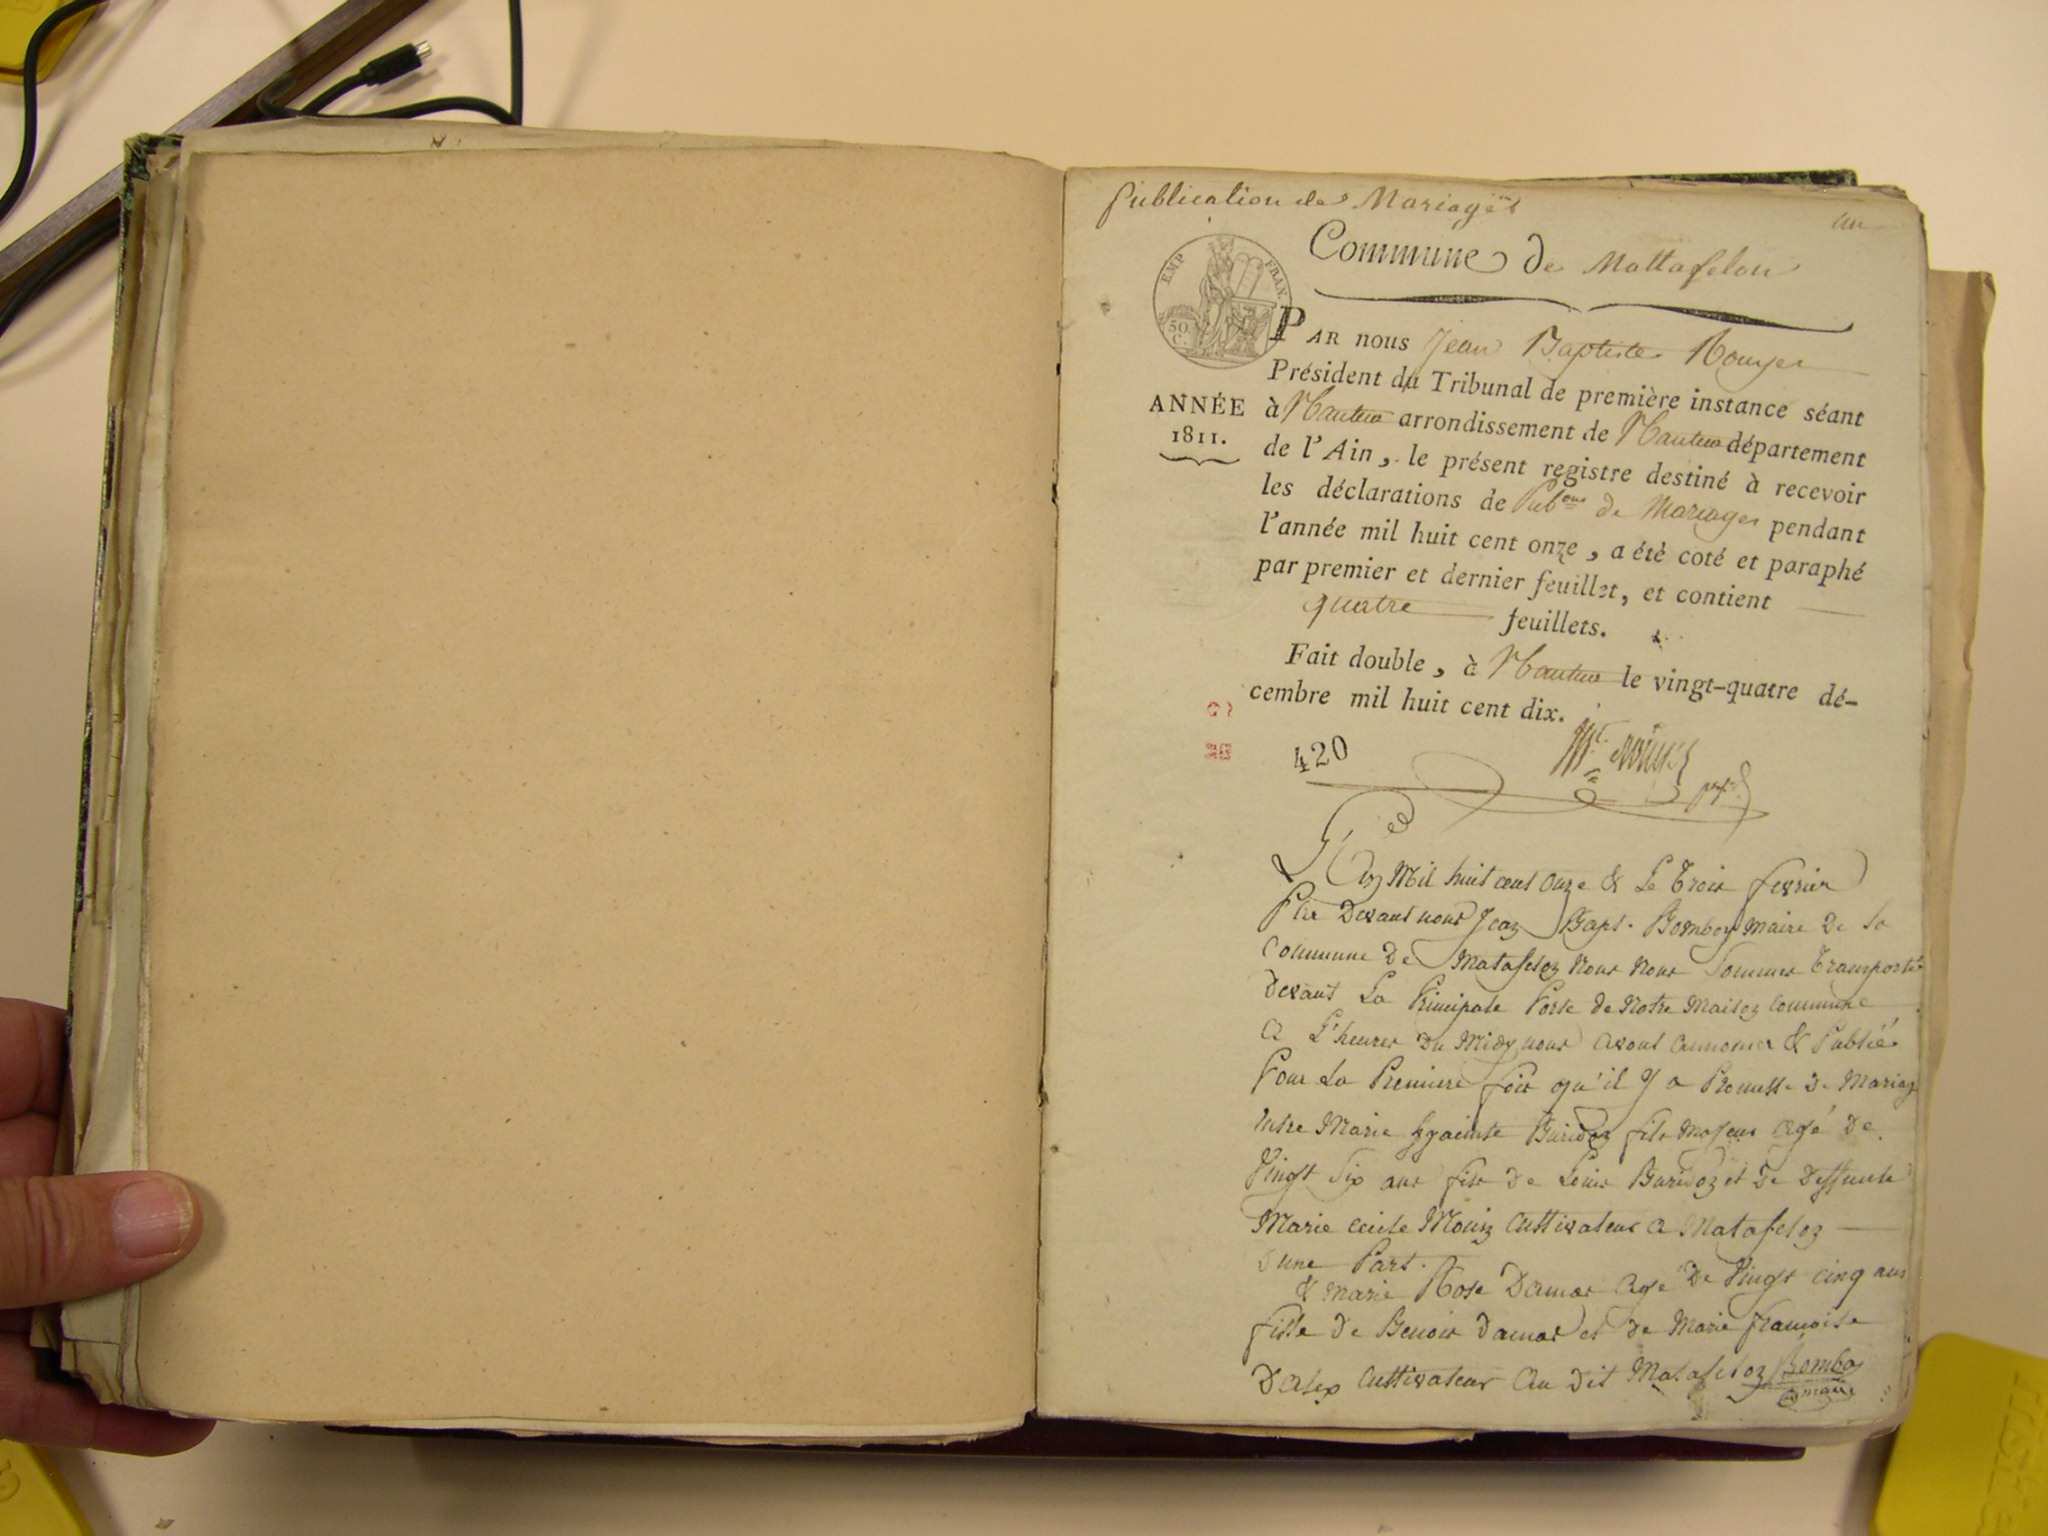 Publication de Mariages
un
Commune de Mattafelon
EMP FRAN.
50 C.
PAR nous Jean Baptiste Rouyer
Président du Tribunal de première instance séant
ANNÉE
1811.
à Nantua arrondissement de Nantua département
de l'Ain, le présent registre destiné à recevoir
les déclarations de Pub.ons de Mariages pendant
l'année mil huit cent onze, a été coté et paraphé
par premier et dernier feuillet, et contient
quatre feuillets.
Fait double, à Nantua le vingt-quatre dé-
cembre mil huit cent dix.
420
L'an Mil huit cent onze & Le Trois fevrier
Par Devant nous Jean Bapt. Bomboy Maire De la
Commune De Matafelon Nous Nous Sommes Transportés
Devant La Principale Porte de Notre Maison Commune
a L'heure Du Midy nous avons annoncer & Publiée
Pour La Premiere fois qu'il y a Promesse De Mariage
entre Marie hyacinte Buridon fils Majeur agé De
Vingt Six ans fils De Louis Buridon et De Deffunte
Marie cecile Cultivateur a Matafelon
d'une Part.
& Marie Rose Damas agé De Vingt cinq ans
fille De Benoit Damas et de Marie francoise
Dalex Cultivateur au Dit Matafelon Bomboy
maire